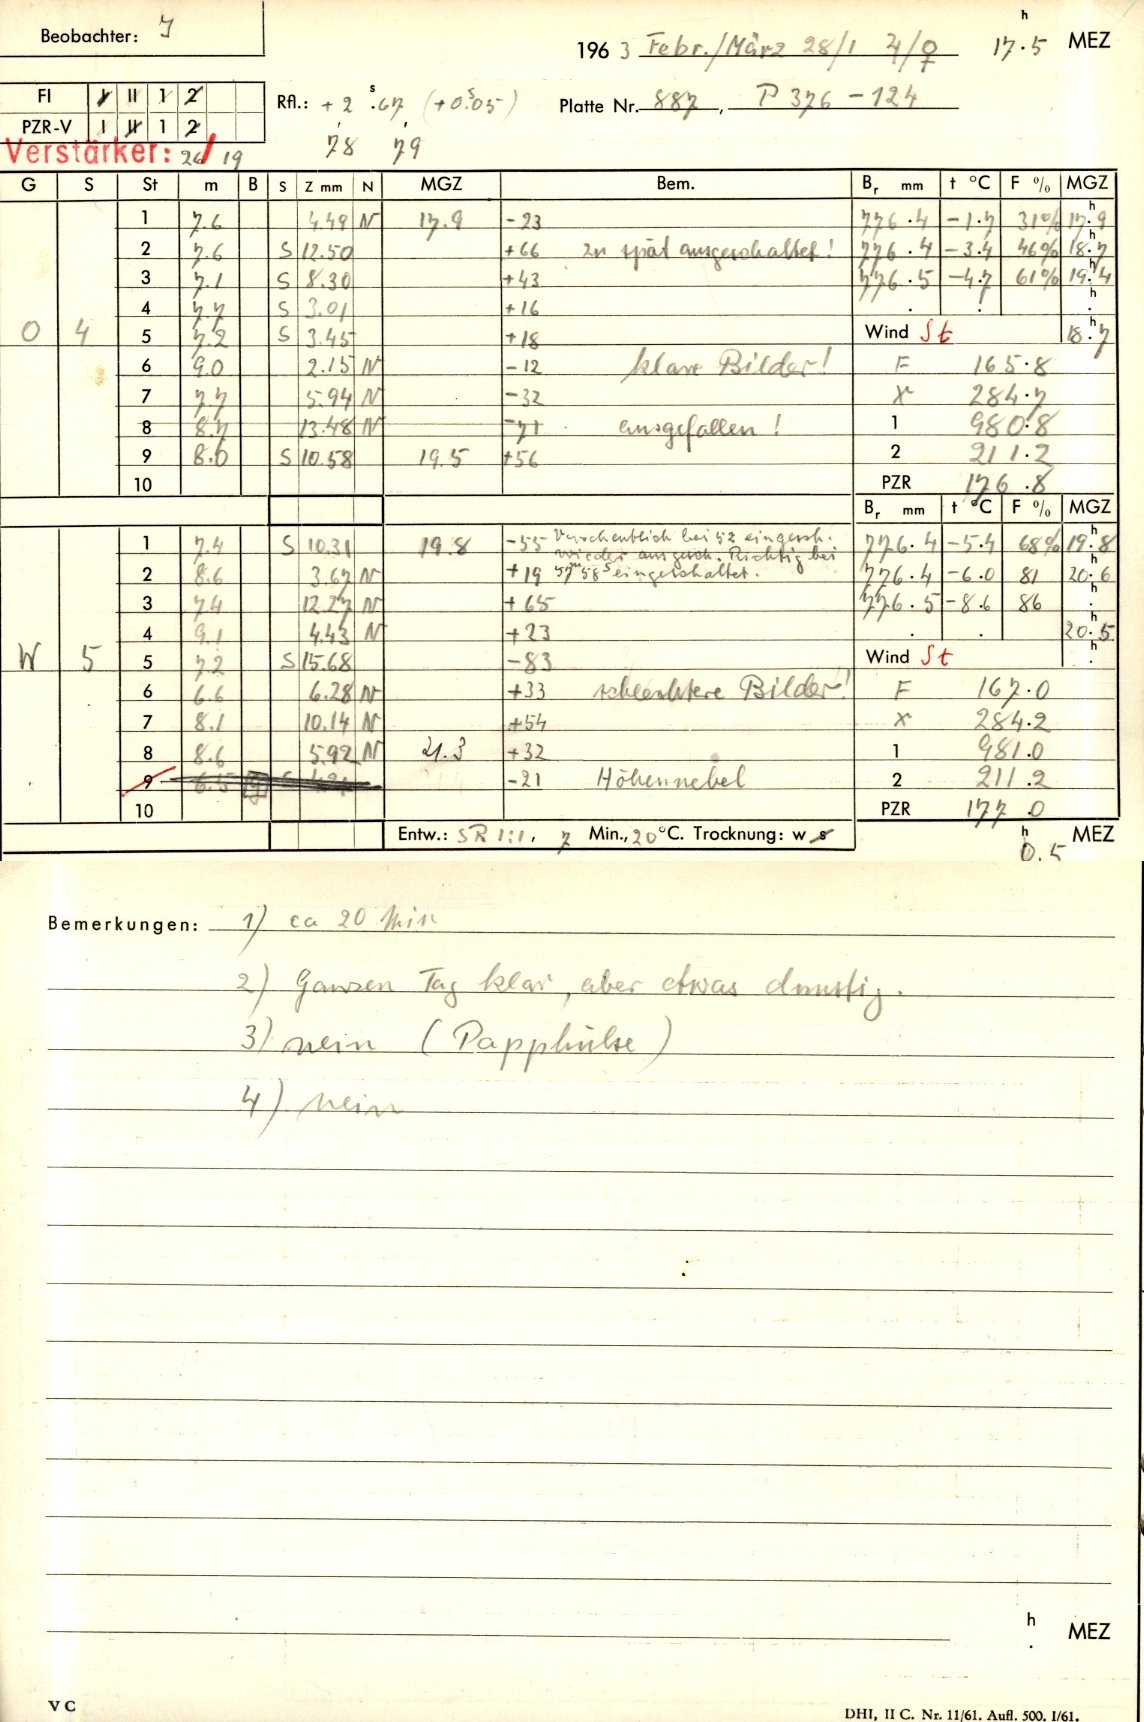 Beobachter: J
1963 Febr./März 28/1 ♃/♀ 17.5 h MEZ
Fl I II 1 2
PZR-V I II 1 2
Rfl.: +2 s.67 (+0 s.05)
Platte Nr. 887, P 376 – 124
78 79
Verstärker: 26/19
G S St m B S Z mm N MGZ Bem. Br mm t °C F % MGZ
1 7.6 4.49 N 17.9 -23 776.4 -1.7 31% 17.9 h
2 7.6 S 12.50 +66 zu spät ausgeschaltet! 776.4 -3.4 46% 18.7 h
3 7.1 S 8.30 +43 776.5 -4.7 61% 19.4 h
4 7.7 S 3.01 +16 . . h .
O 4 5 7.2 S 3.45 +18 Wind St 18.7 h
6 9.0 2.15 N -12 klare Bilder! F 165.8
7 7.7 5.94 N -32 x 284.7
8 8.7 13.48 N -71 ausgefallen! 1 980.8
9 8.0 S 10.58 19.5 +56 2 211.2
10 PZR 176.8
Br mm t °C F % MGZ
1 7.4 S 10.31 19.8 -55 Versehentlich bei 52 eingesch. 776.4 -5.4 68% 19.8 h
wieder ausgesch. Richtig bei
2 8.6 3.67 N +19 57m 58s eingeschaltet. 776.4 -6.0 81 20.6 h
3 7.4 12.27 N +65 776.5 -8.6 86 . h
4 9.1 4.43 N +23 . . 20.5
W 5 5 7.2 S 15.68 -83 Wind St . h
6 6.6 6.28 N +33 schlechtere Bilder! F 167.0
7 8.1 10.14 N +54 x 284.2
8 8.6 5.92 N 21.3 +32 1 981.0
9 6.5 -21 Höhennebel 2 211.2
10 PZR 177.0
Entw.: SR 1:1, 7 Min., 20°C. Trocknung: w s 0.5 h MEZ
Bemerkungen: 1) ca 20 Min
2) Ganzen Tag klar, aber etwas dunstig.
3) nein (Papphülse)
4) nein
h . MEZ
V C
DHI, II C. Nr. 11/61. Aufl. 500. I/61.